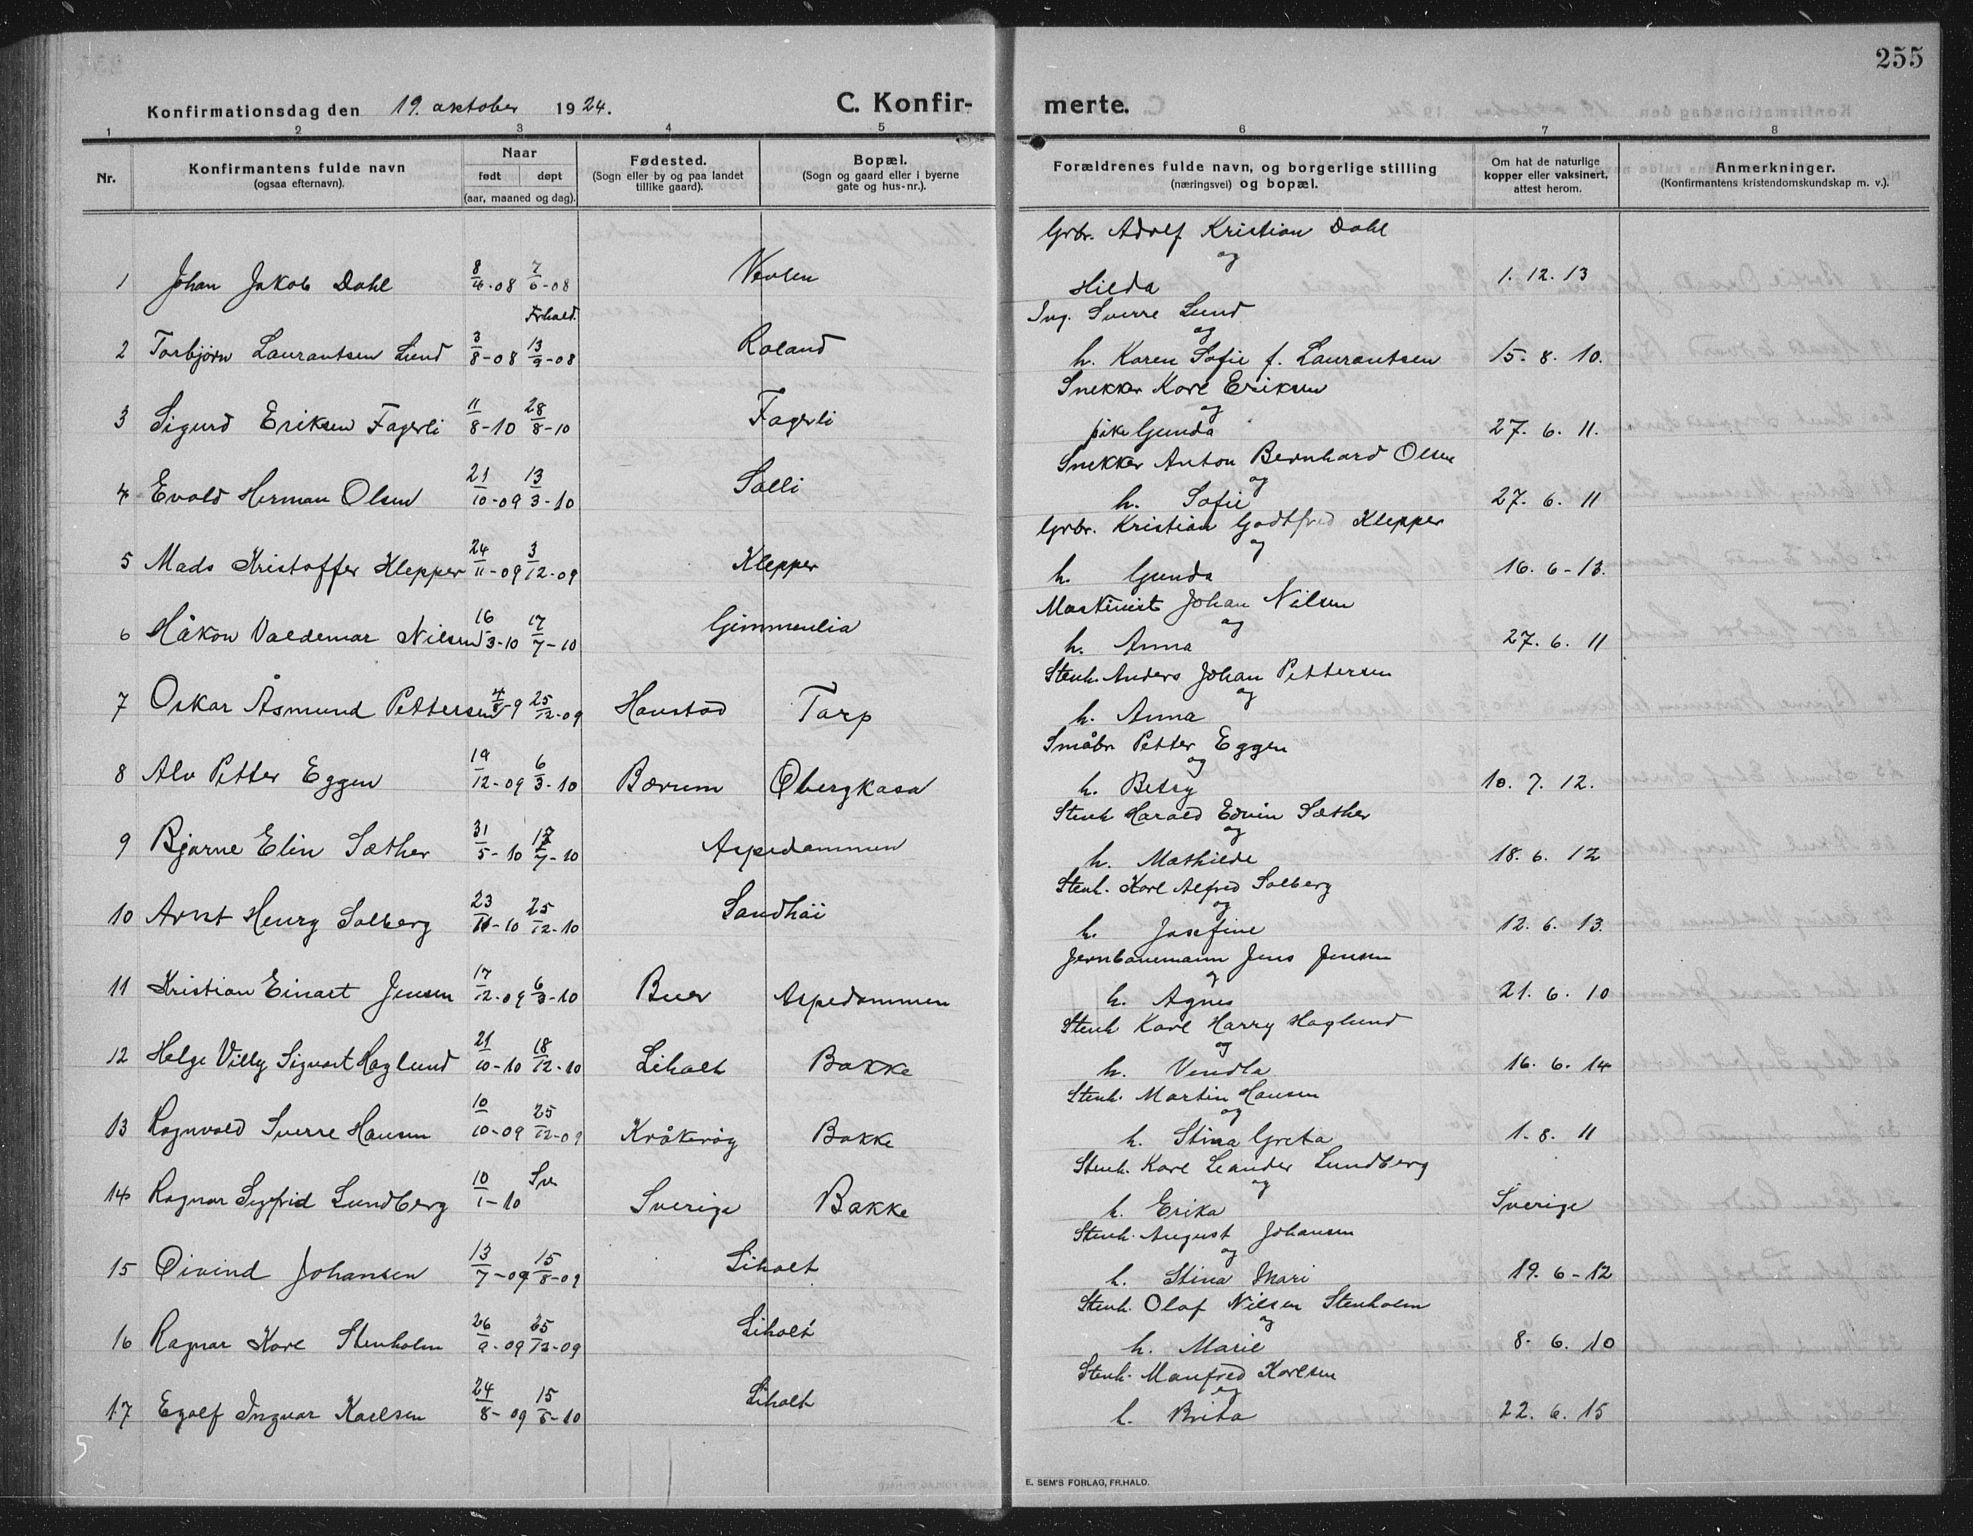 255
Konfirmationsdag den 19. oktober 1924.
C. Konfir-
merte.
1 2 3 4 5 6 7 8
Nr.
Konfirmantens fulde navn
(ogsaa efternavn).
Naar
født døpt
(aar, maaned og dag).
Fødested.
(Sogn eller by og paa landet
tillike gaard).
Bopæl.
(Sogn og gaard eller i byerne
gate og hus-nr.).
Forældrenes fulde navn, og borgerlige stilling
(næringsvei) og bopæl.
Om hat de naturlige
kopper eller vaksinert,
attest herom.
Anmerkninger.
(Konfirmantens kristendomskundskap m. v.).
Grbr. Adolf Kristian Dahl
og
1 Johan Jakob Dahl 8/4-08 7/6-08 Hilda 1. 12. 13
Frhald.
Ing. Sverre Lund
og
2 Torbjørn Laurantsen Lund 3/8-08 13/9-08 Roland h. Karen Sofie f. Laurantsen 15. 8. 10.
Snekker Karl Eriksen
og
3 Sigurd Eriksen Fagerli 11/8-10 28/8-10 Fagerli pike Gunda 27. 6. 11.
Snekker Anton Bernhard Olsen
og
4 Evald Herman Olsen 21/10-09 13/3-10 Solli h. Sofie 27. 6. 11
Grbr. Kristian Godtfred Klepper
og
5 Mads Kristoffer Klepper 24/11-09 3/12-09 Klepper h. Gunda 16. 6-13.
Maskinist Johan Nilsen
og
6 Håkon Valdemar Nilsen 16/3-10 17/7-10 Gimmenlia h. Anna 27. 6. 11
Stenh. Anders Johan Pettersen
og
7 Oskar Åsmund Pettersen 25/12-09 Torp h. Anna
Småbr. Petter Eggen
og
8 Alv Petter Eggen 19/12-09 6/3-10 Bærum Øbergkasa h. Betsy 10. 7. 12.
Stenh. Harald Edvin Sæther
og
9 Bjarne Elin Sæther 31/5-10 17/7-10 Aspedammen h. Mathilde 18. 6. 12
Stenh. Karl Alfred Solberg
og
10 Arnt Henry Solberg 23/11-10 25/12-10 Sandhöi h. Josefine 12. 6. 13.
Jernbanemann Jens Jensen
og
11 Kristian Einart Jensen 17/12-09 6/3-10 Buer Aspedammen h. Agnes 21. 6. 10
Stenh. Karl Harry Haglund
og
12 Helge Villy Sigvart Haglund 21/10-10 18/12-10 Liholt Bakke h. Vendla 16. 6. 14
Stenh. Martin Hansen
og
13 Ragnvald Sverre Hansen 10/10-09 25/12-09 Kråkerøy Bakke h. Stina Greta 1. 8. 11
Stenh. Karl Leander Lundberg
og
14 Ragnar Sigfrid Lundberg 10/1-10 Sve Sverige Bakke h. Erika Sverige
Stenh. August Johansen
og
15 Øivind Johansen 13/7-09 15/8-09 Liholt h. Stina Mari 19. 6-12
Stenh. Olaf Nilsen Stenholm
og
16 Ragnar Karl Stenholm 26/9-09 25/12-09 Liholt h. Marie 8. 6. 10
Stenh. Manfred Karlsen
og
17 Egolf Ingvar Karlsen 24/8-09 15/5-10 Liholt h. Brita 22. 6. 15
5
E. SEM'S FORLAG, FR.HALD.